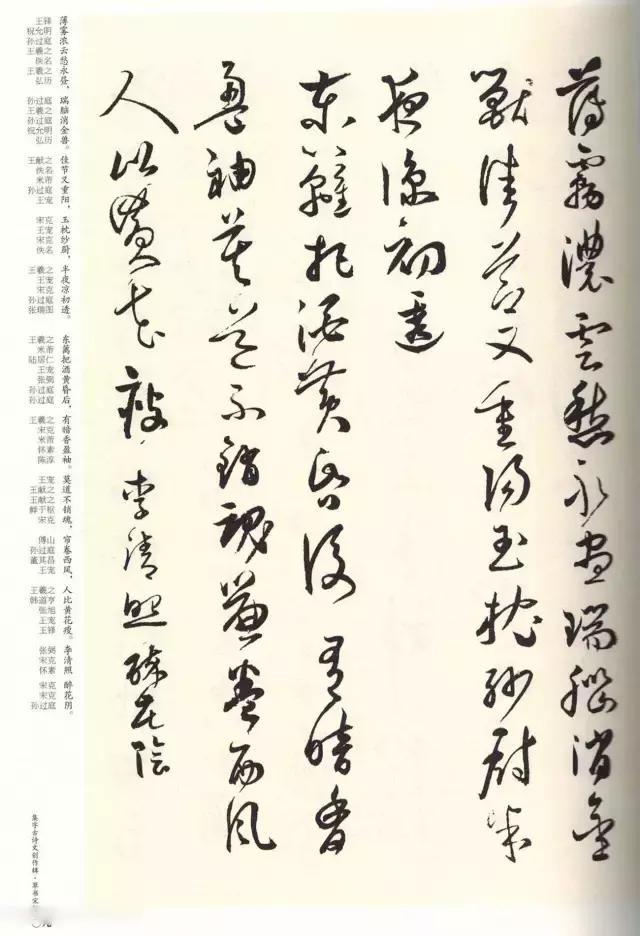 薄霧濃雲愁永晝瑞腦消金
獸佳節又重陽玉枕紗厨半
夜涼初透
東籬把酒黃昏後有暗香
盈袖莫道不銷魂簾卷西風
人比黃花瘦李清照醉花陰
薄雾浓云愁永昼，瑞脑消金兽。佳节又重阳，玉枕纱厨，半夜凉初透。东篱把酒黄昏后，有暗香盈袖。莫道不销魂，帘卷西风，人比黄花瘦。李清照 醉花阴。
王铎
祝允明
孙过庭
王羲之
佚名
王羲之
弘历
孙过庭
王羲之
孙过庭
祝允明
弘历
王献之
佚名
米芾
孙过庭
王宠
宋克
王宠
宋克
佚名
王羲之
王宠
宋克
孙过庭
张瑞图
王羲之
米芾
陆居仁
王宠
张弼
孙过庭
孙过庭
王羲之
宋克
米芾
怀素
陈淳
王宠
王献之
王献之
鲜于枢
宋克
傅山
孙过庭
董其昌
王宠
王羲之
韩道亨
张旭
王宠
王铎
张弼
宋克
怀素
宋克
宋克
孙过庭
集字古诗文创作辑·草书宋